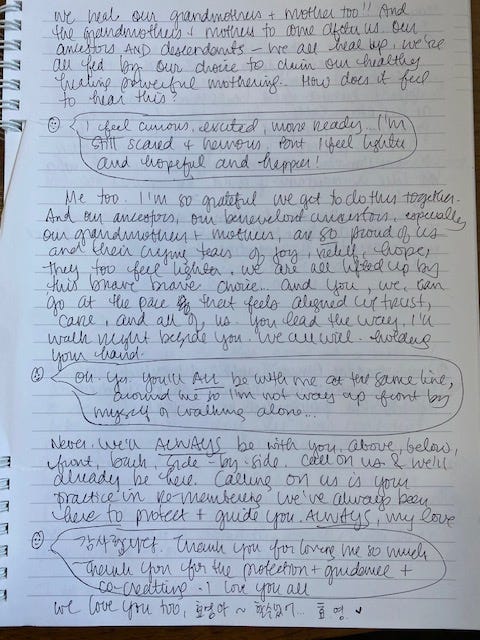 We heal our grandmothers + mother too!! And
the grandmothers + mothers to come after us. Our
ancestors AND descendants – we all heal up, we're
all fed by our choice to claim our healthy
healing powerful mothering. How does it feel
to hear this?
I feel curious, excited, more ready... I'm
still scared + nervous. But I feel lighter
and hopeful and happier!
Me too. I'm so grateful we get to do this together.
And our ancestors, our benevolent ancestors, especially
our grandmothers + mothers, are so proud of us
and their crying tears of joy, relief, hope,
they too feel lighter, we are all lifted up by
this brave brave choice. And you, we, can
go at the pace that feels aligned w/ trust,
care, and all of us. You lead the way, I'll
walk right beside you. We all will. holding
your hand.
Oh. Yes. You'll ALL be with me at the same line,
around me so I'm not way up front by
myself or walking alone...
Never. We'll ALWAYS be with you, above, below,
front, back, side-by-side. Call on us & we'll
already be here. Calling on us is your
practice in re-membering we've always been
here to protect + guide you. ALWAYS, my love
감사합니다. Thank you for loving me so much
Thank you for the protection + guidance +
co-creating. I love you all
We love you too, ~